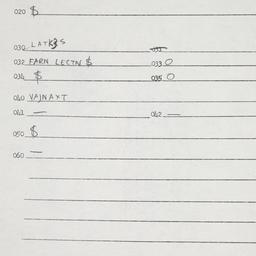 020 $
030 LATKES 031
032 FARN LECTN $ 033 O
034 $ 035 O
040 VAJNAXT
041 — 042 —
050 $
060 —